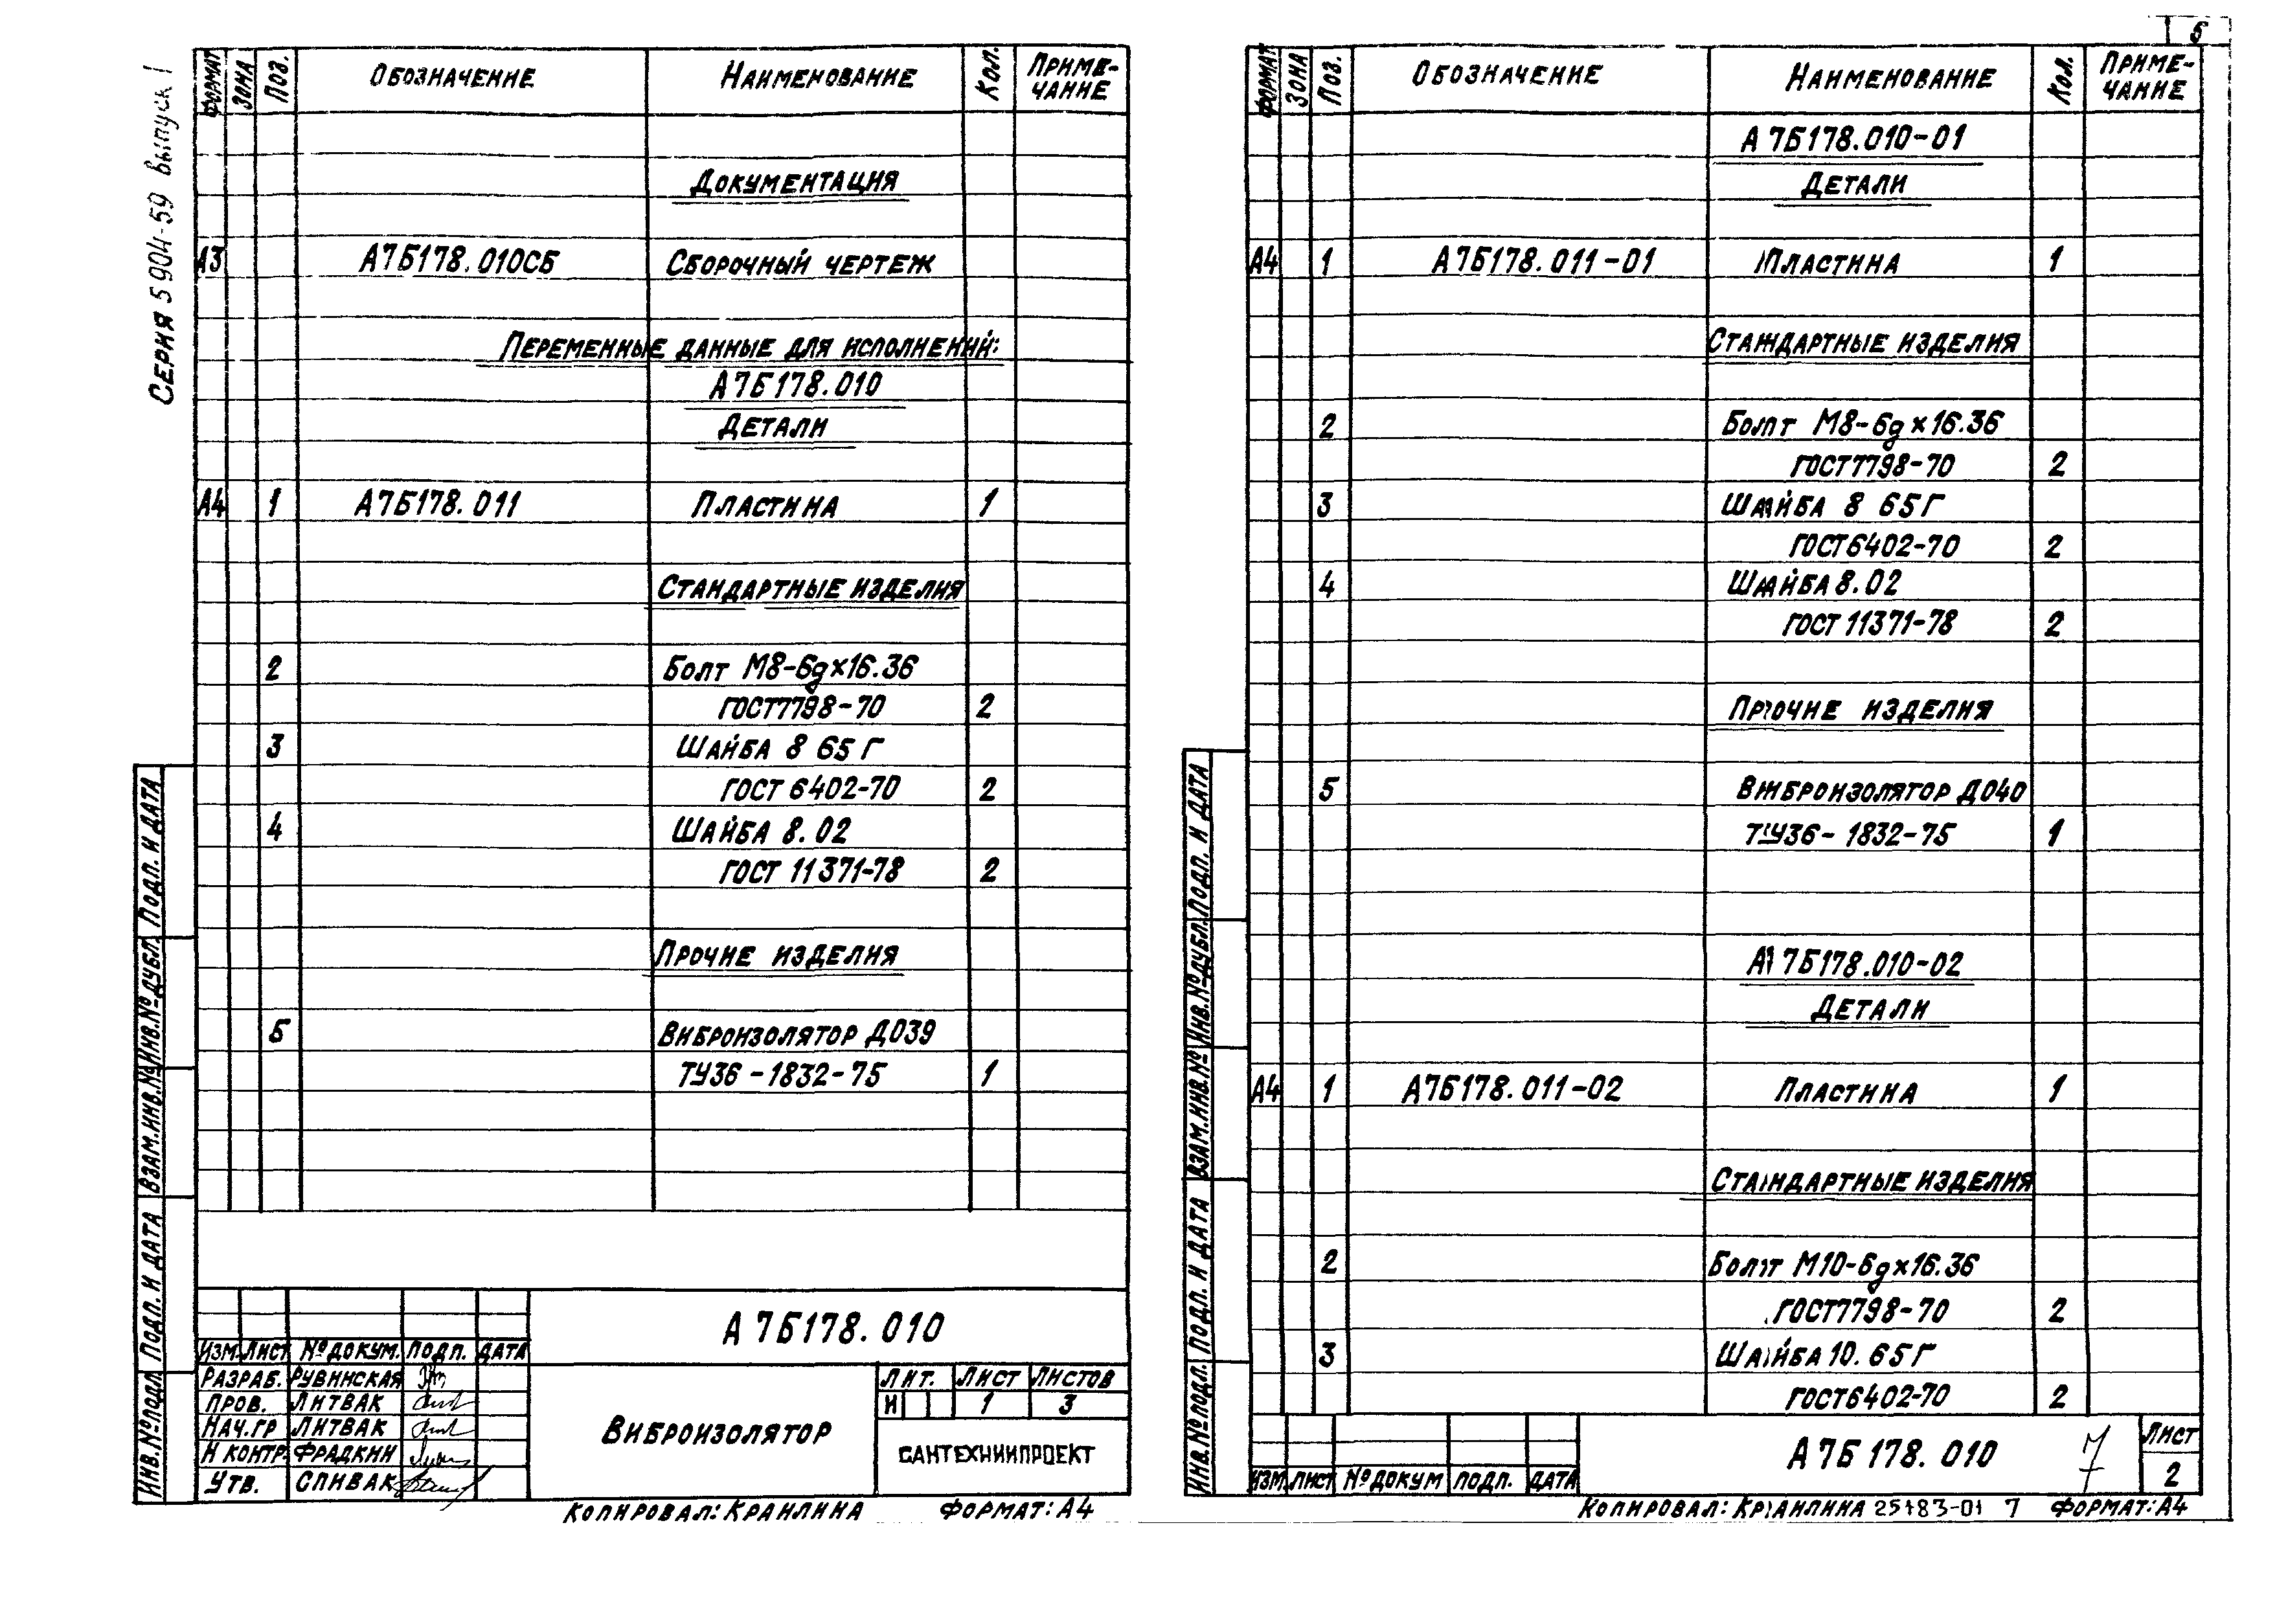 Серия 5904-59 выпуск 1
Формат Зона Поз. Обозначение Наименование Кол. Приме-
чание
Документация
А3 А7Б178.010СБ Сборочный чертеж
Переменные данные для исполнений:
А7Б178.010
Детали
А4 1 А7Б178.011 Пластина 1
Стандартные изделия
2 Болт М8-6g×16.36
ГОСТ7798-70 2
3 Шайба 8 65Г
ГОСТ 6402-70 2
4 Шайба 8.02
ГОСТ 11371-78 2
Прочие изделия
5 Виброизолятор Д039
ТУ36-1832-75 1
Инв.№подл. Подп. и дата Взам.инв.№ Инв.№дубл. Подп. и дата
А7Б178.010
Изм. Лист №докум. Подп. Дата
Разраб. Рувинская
Пров. Литвак
Нач.гр Литвак
Н контр. Фрадкин
Утв. Спивак
Виброизолятор
Лит. Лист Листов
И 1 3
САНТЕХНИИПРОЕКТ
Копировал: Кранлина Формат: А4
Формат Зона Поз. Обозначение Наименование Кол. Приме-
чание
А7Б178.010-01
Детали
А4 1 А7Б178.011-01 Пластина 1
Стандартные изделия
2 Болт М8-6g×16.36
ГОСТ7798-70 2
3 Шайба 8 65Г
ГОСТ6402-70 2
4 Шайба 8.02
ГОСТ 11371-78 2
Прочие изделия
5 Виброизолятор Д040
ТУ36-1832-75 1
А7Б178.010-02
Детали
А4 1 А7Б178.011-02 Пластина 1
Стандартные изделия
2 Болт М10-6g×16.36
ГОСТ7798-70 2
3 Шайба 10.65Г
ГОСТ6402-70 2
Инв.№подл. Подп. и дата Взам.инв.№ Инв.№дубл. Подп. и дата
Изм Лист №докум Подп. Дата
А7Б178.010
7
Лист
2
Копировал: Кранлина 25183-01 7 Формат: А4